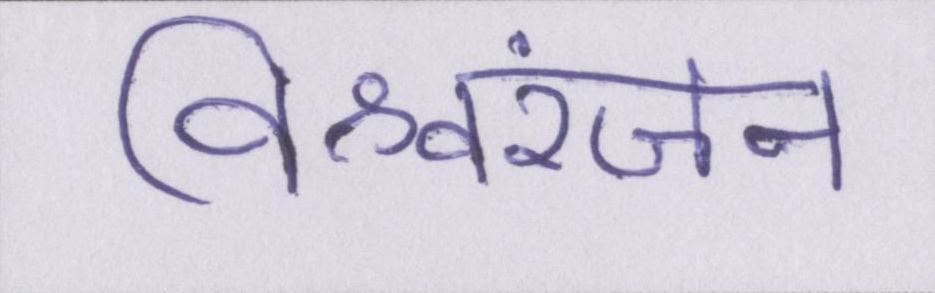 विश्वरंजन